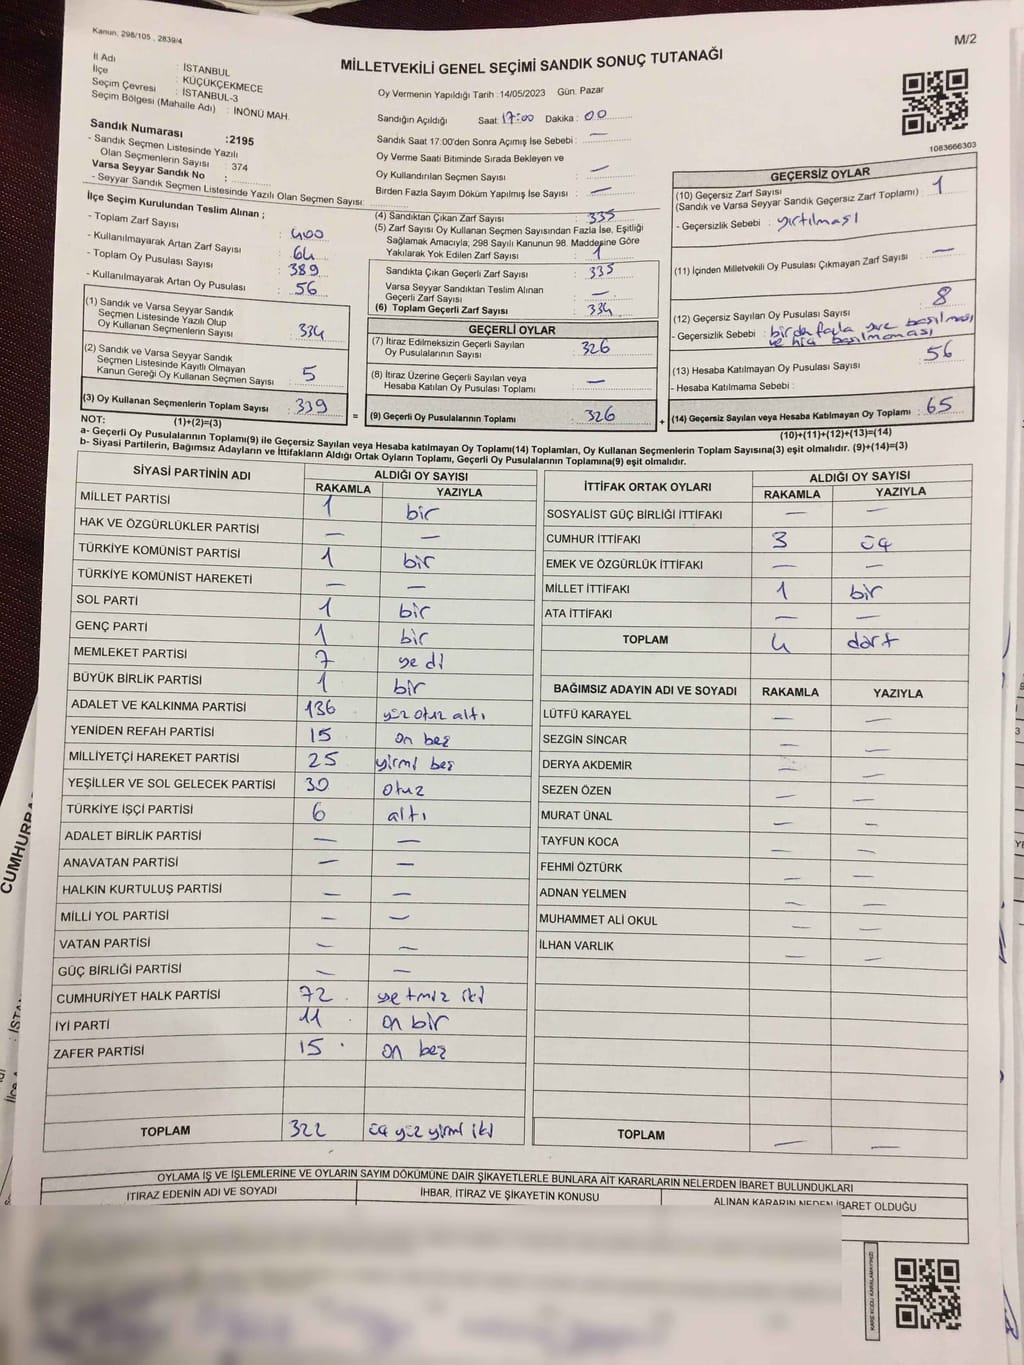 Kanun, 298/105 , 2839/4
M/2
MİLLETVEKİLİ GENEL SEÇİMİ SANDIK SONUÇ TUTANAĞI
İl Adı : İSTANBUL
İlçe : KÜÇÜKÇEKMECE
Seçim Çevresi : İSTANBUL-3
Seçim Bölgesi (Mahalle Adı) : İNÖNÜ MAH.
Sandık Numarası :2195
- Sandık Seçmen Listesinde Yazılı
Olan Seçmenlerin Sayısı : 374
Varsa Seyyar Sandık No :
- Seyyar Sandık Seçmen Listesinde Yazılı Olan Seçmen Sayısı:
Oy Vermenin Yapıldığı Tarih :14/05/2023 Gün. Pazar
Sandığın Açıldığı Saat: 17:00 Dakika: 00
Sandık Saat 17.00'den Sonra Açımış İse Sebebi : —
Oy Verme Saati Bitiminde Sırada Bekleyen ve
Oy Kullandırılan Seçmen Sayısı : —
Birden Fazla Sayım Döküm Yapılmış İse Sayısı : —
1083666303
İlçe Seçim Kurulundan Teslim Alınan ;
- Toplam Zarf Sayısı : 400
- Kullanılmayarak Artan Zarf Sayısı : 64
- Toplam Oy Pusulası Sayısı : 389
- Kullanılmayarak Artan Oy Pusulası : 56
(1) Sandık ve Varsa Seyyar Sandık
Seçmen Listesinde Yazılı Olup
Oy Kullanan Seçmenlerin Sayısı : 334
(2) Sandık ve Varsa Seyyar Sandık
Seçmen Listesinde Kayıtlı Olmayan
Kanun Gereği Oy Kullanan Seçmen Sayısı : 5
(3) Oy Kullanan Seçmenlerin Toplam Sayısı : 339
(1)+(2)=(3)
(4) Sandıktan Çıkan Zarf Sayısı : 335
(5) Zarf Sayısı Oy Kullanan Seçmen Sayısından Fazla İse, Eşitliği
Sağlamak Amacıyla; 298 Sayılı Kanunun 98. Maddesine Göre
Yakılarak Yok Edilen Zarf Sayısı : 1
Sandıkta Çıkan Geçerli Zarf Sayısı : 335
Varsa Seyyar Sandıktan Teslim Alınan
Geçerli Zarf Sayısı : —
(6) Toplam Geçerli Zarf Sayısı : 334
GEÇERLİ OYLAR
(7) İtiraz Edilmeksizin Geçerli Sayılan
Oy Pusulalarının Sayısı : 326
(8) İtiraz Üzerine Geçerli Sayılan veya
Hesaba Katılan Oy Pusulası Toplamı : —
= (9) Geçerli Oy Pusulalarının Toplamı : 326
GEÇERSİZ OYLAR
(10) Geçersiz Zarf Sayısı : 1
(Sandık ve Varsa Seyyar Sandık Geçersiz Zarf Toplamı)
- Geçersizlik Sebebi : yırtılması
(11) İçinden Milletvekili Oy Pusulası Çıkmayan Zarf Sayısı : —
(12) Geçersiz Sayılan Oy Pusulası Sayısı : 8
- Geçersizlik Sebebi : birden fazla yere basılması
ve hiç basılmaması
(13) Hesaba Katılmayan Oy Pusulası Sayısı : 56
- Hesaba Katılmama Sebebi :
+ (14) Geçersiz Sayılan veya Hesaba Katılmayan Oy Toplamı : 65
(10)+(11)+(12)+(13)=(14)
NOT:
a- Geçerli Oy Pusulalarının Toplamı(9) ile Geçersiz Sayılan veya Hesaba katılmayan Oy Toplamı(14) Toplamları, Oy Kullanan Seçmenlerin Toplam Sayısına(3) eşit olmalıdır. (9)+(14)=(3)
b- Siyasi Partilerin, Bağımsız Adayların ve İttifakların Aldığı Ortak Oyların Toplamı, Geçerli Oy Pusulalarının Toplamına(9) eşit olmalıdır.
SİYASİ PARTİNİN ADI ALDIĞI OY SAYISI
RAKAMLA YAZIYLA
MİLLET PARTİSİ 1 bir
HAK VE ÖZGÜRLÜKLER PARTİSİ — —
TÜRKİYE KOMÜNİST PARTİSİ 1 bir
TÜRKİYE KOMÜNİST HAREKETİ — —
SOL PARTİ 1 bir
GENÇ PARTİ 1 bir
MEMLEKET PARTİSİ 7 yedi
BÜYÜK BİRLİK PARTİSİ 1 bir
ADALET VE KALKINMA PARTİSİ 136 yüz otuz altı
YENİDEN REFAH PARTİSİ 15 on beş
MİLLİYETÇİ HAREKET PARTİSİ 25 yirmi beş
YEŞİLLER VE SOL GELECEK PARTİSİ 30 otuz
TÜRKİYE İŞÇİ PARTİSİ 6 altı
ADALET BİRLİK PARTİSİ — —
ANAVATAN PARTİSİ — —
HALKIN KURTULUŞ PARTİSİ — —
MİLLİ YOL PARTİSİ — —
VATAN PARTİSİ — —
GÜÇ BİRLİĞİ PARTİSİ — —
CUMHURİYET HALK PARTİSİ 72 yetmiz iki
İYİ PARTİ 11 on bir
ZAFER PARTİSİ 15 on beş
TOPLAM 322 üç yüz yirmi iki
İTTİFAK ORTAK OYLARI ALDIĞI OY SAYISI
RAKAMLA YAZIYLA
SOSYALİST GÜÇ BİRLİĞİ İTTİFAKI — —
CUMHUR İTTİFAKI 3 üç
EMEK VE ÖZGÜRLÜK İTTİFAKI — —
MİLLET İTTİFAKI 1 bir
ATA İTTİFAKI — —
TOPLAM 4 dört
BAĞIMSIZ ADAYIN ADI VE SOYADI RAKAMLA YAZIYLA
LÜTFÜ KARAYEL — —
SEZGİN SİNCAR — —
DERYA AKDEMİR — —
SEZEN ÖZEN — —
MURAT ÜNAL — —
TAYFUN KOCA — —
FEHMİ ÖZTÜRK — —
ADNAN YELMEN — —
MUHAMMET ALİ OKUL — —
İLHAN VARLIK — —
TOPLAM — —
OYLAMA İŞ VE İŞLEMLERİNE VE OYLARIN SAYIM DÖKÜMÜNE DAİR ŞİKAYETLERLE BUNLARA AİT KARARLARIN NELERDEN İBARET BULUNDUKLARI
İTİRAZ EDENİN ADI VE SOYADI İHBAR, İTİRAZ VE ŞİKAYETİN KONUSU ALINAN KARARIN NEDEN İBARET OLDUĞU